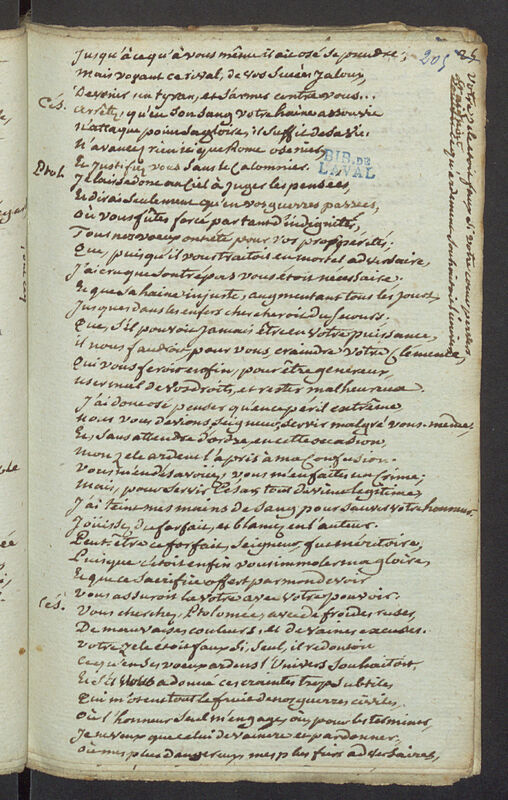 205
Jusqu'à ce qu'à vous même il ait osé se prendre;
Mais voyant ce rival, de vos succès jaloux,
Devenir un tyran, et s'armer contre vous...
Cés. Arrêtez, qu'en son sang votre haine assouvie
N'attaque point sa gloire, il suffit de sa vie.
N'avancez rien ici que Rome ose nier,
Et justifiez vous sans le calomnier.
Ptol. Je laisse donc au Ciel à juger les pensées,
Et dirai seulement qu'en vos guerres passées,
Où vous fûtes forcé par tant d'indignités,
Tous nos voeux ont été pour vos prospérités;
Que, puisqu'il vous traitoit en mortel adversaire,
J'ai cru que sa mort pour vous étoit nécessaire:
Et que sa haine injuste, augmentant tous les jours,
Jusques dans les enfers chercheroit du secours.
Que, s'il pouvoit jamais être en votre puissance,
il nous faudroit pour vous craindre votre clemence,
Qui vous feroit enfin, pour être genéreux,
User mal de vos droits, et rester malheureux.
J'ai donc osé penser qu'en ce péril extrême
Nous vous devions, Seigneur, servir malgré vous-même,
Et, sans attendre d'ordre, en cette occasion,
mon zele ardent l'a pris à ma Confusion.
Vous m'en desavouëz, vous m'en faites un Crime;
Mais, pour servir César, tout devient legitime
J'ai teint mes mains de sang pour sauver votre honneur.
Jouissez du forfait, et blamez en l'auteur.
Peut être ce forfait, Seigneur, fut méritoire,
Puisque c'étoit enfin vous immoler ma gloire,
Et que ce sacrifice offert par mon devoir
Vous assuroit la votre avec votre pouvoir.
Cés. Vous cherchez, Ptolomée, avec de froides ruses,
De mauvaises couleurs, et de vaines excuses.
Votre zele étoit faux si, seul, il redoutoit
Ce qu'en ses voeux ardens l'Univers souhaitoit,
Et s'il vous a donné ces craintes trop subtiles
Qui m'otent tout le fruit de nos guerres civiles.
Où l'honneur seul m'engage, où, pour les terminer,
Je ne veux que celui de vaincre et pardonner;
Où mes plus dangereux, mes plus fiers adversaires,
BIB. DE
LAVAL
Votre zele étoit faux si votre coeur pervers